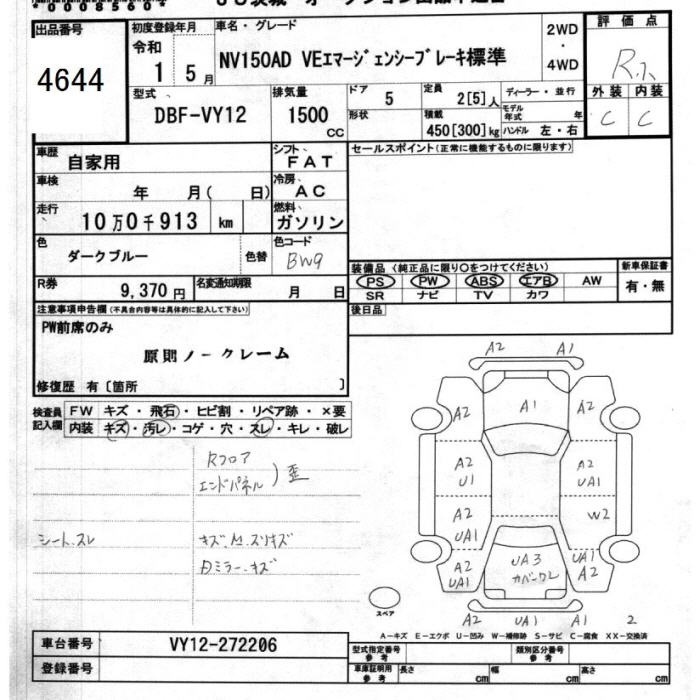 *0008560*
出品番号
4644
初度登録年月
令和
1 5月
車名・グレード
NV150AD VEエマージェンシーブレーキ標準
2WD
・
4WD
型式
DBF-VY12
排気量
1500
CC
ドア
5
形状
定員
2[5]人
積載
450[300]kg
ディーラー・並行
モデル年式 年
ハンドル 左・右
評価点
外装 内装
C C
車歴
自家用
車検
年 月( 日)
走行
10万0千913 km
色
ダークブルー
色替
シフト
FAT
冷房
AC
燃料
ガソリン
色コード
BW9
R券
9,370円
名変通知期限
月 日
セールスポイント(正常に機能するものに限ります)
装備品(純正品に限り○をつけてください)
PS PW ABS エアB AW
SR ナビ TV カワ
新車保証書
有・無
後日品
注意事項申告欄(不具合内容等は具体的に記入して下さい)
PW前席のみ
原則ノークレーム
修復歴 有〔箇所 〕
検査員記入欄
FW キズ・飛石・ヒビ割・リペア跡・×要
内装 キズ・汚レ・コゲ・穴・スレ・キレ・破レ
Rフロア
エンドパネル ) 歪
シート.スレ
キズ.
ミラー.キズ
A2 A1
A2 A1 A2
A2 U1
A2 UA1
A2 UA1
W2
A2 UA1
UA3
UA1 A2
A2 UA1 A1 2
スペア
A-キズ E-エクボ U-凹み W-補修跡 S-サビ C-腐食 XX-交換済
車台番号
VY12-272206
登録番号
型式指定番号
参考
類別区分番号
参考
車庫証明用
参考
長さ cm
幅 cm
高さ cm